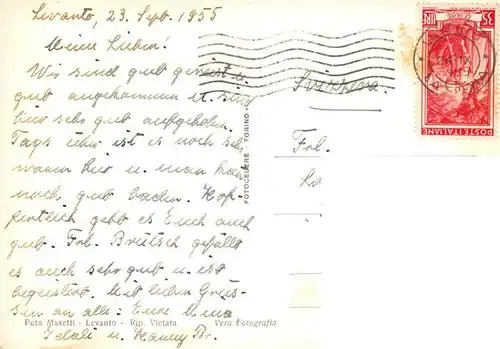 Levanto, 23. Sept. 1955
Meine Lieben!
Wir sind gut gereist u.
gut angekommen u. sind
hier sehr gut aufgehoben.
Tags über ist es noch sehr
warm hier u. man kann
noch gut baden. Hof-
fentlich geht es Euch auch
gut. Frl. Brütsch gefällt
es auch sehr gut u. ist
begeistert. Mit lieben Grüs-
sen an alle: Eure
u.
Foto Masetti - Levanto - Rip. Vietata
Vera Fotografia
FOTOCELERE - TORINO
Svizzera
Frl.
LIRE 35
POSTE ITALIANE